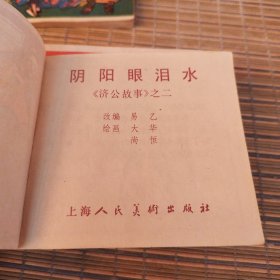 阴阳眼泪水
《济公故事》之二
改编 易乙
绘画 大华
尚恒
上海人民美術出版社